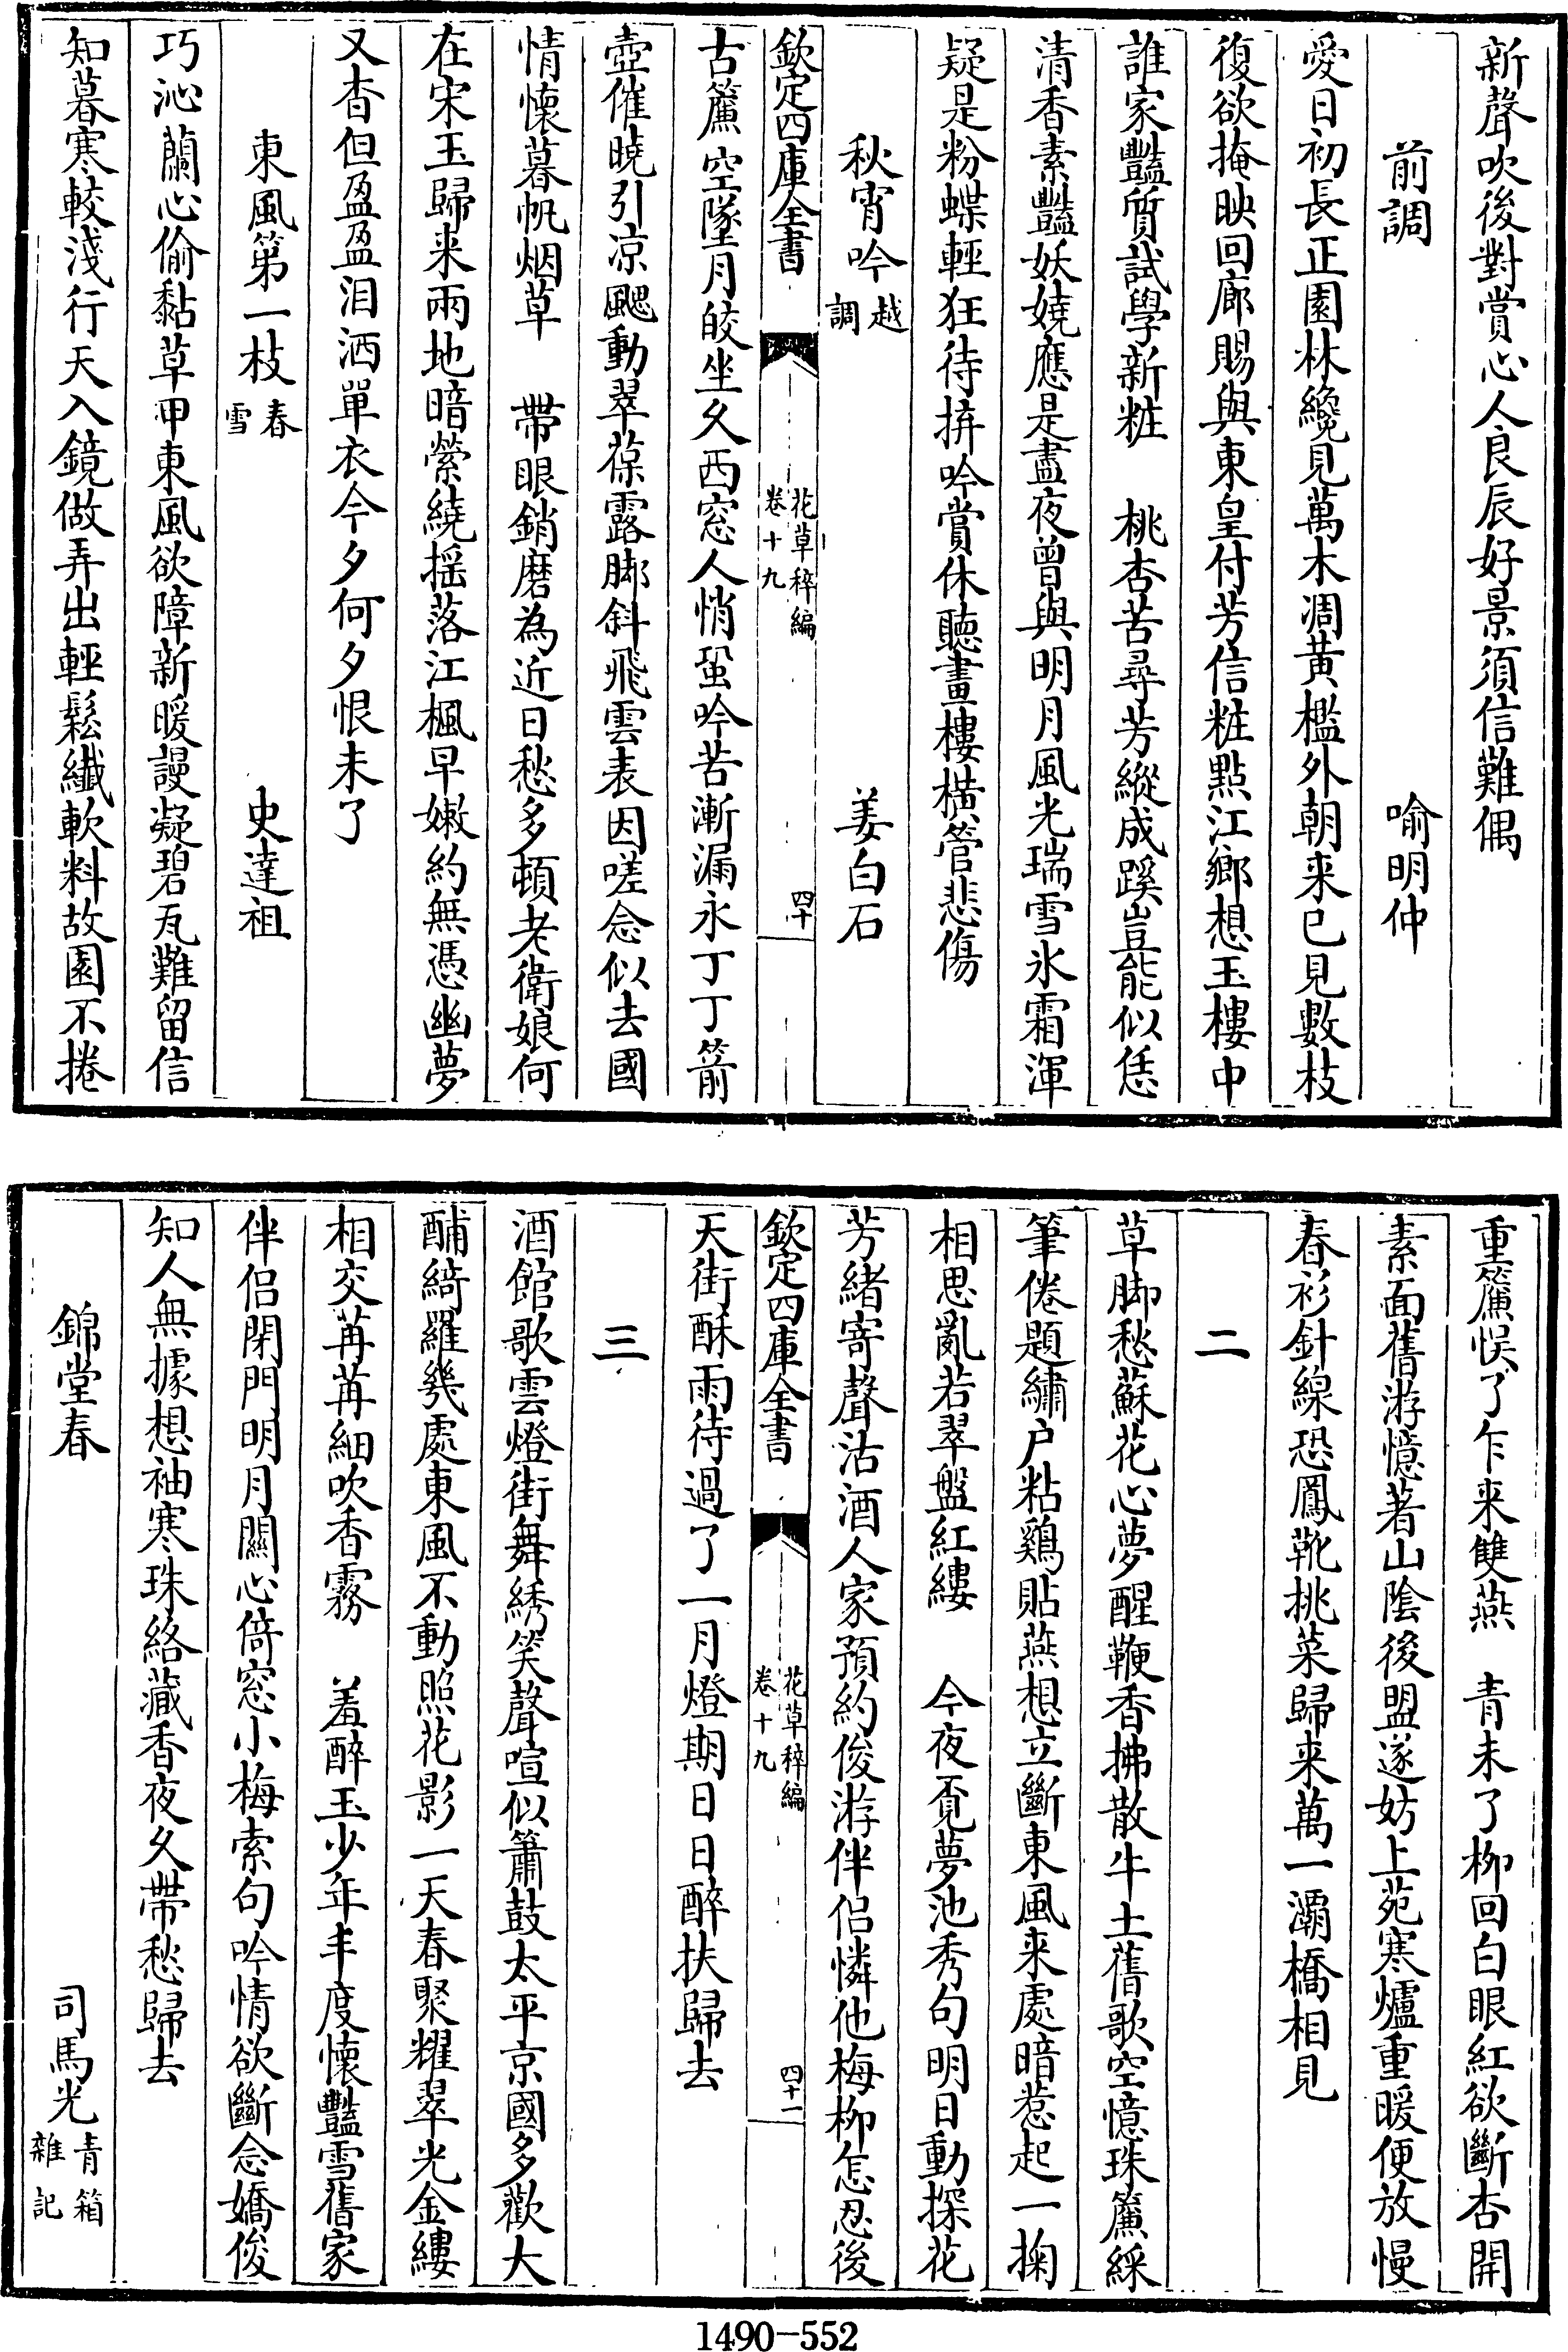 新聲吹後對賞心人良辰好景須信難偶
前調　喻明仲
愛日初長正園林纔見萬木凋黃檻外朝来已見數枝
復欲掩映回廊賜與東皇付芳信粧點江鄉想玉樓中
誰家豔質試學新粧　桃杏苦尋芳縱成蹊豈能似恁
清香素豔妖嬈應是盡夜曾與明月風光瑞雪氷霜渾
疑是粉蝶輕狂待拚吟賞休聽畫樓橫管悲傷
秋宵吟越調　姜白石
欽定四庫全書　花草稡編卷十九　四十
古簾空墜月皎坐久西窓人悄蛩吟苦漸漏永丁丁箭
壺催曉引凉颸動翠葆露脚斜飛雲表因嗟念似去國
情懷暮帆烟草　帶眼銷磨為近日愁多頓老衛娘何
在宋玉歸来兩地暗縈繞摇落江楓早嫩約無憑幽夢
又杳但盈盈泪洒單衣今夕何夕恨未了
東風第一枝春雪　史達祖
巧沁蘭心偷黏草甲東風欲障新暖謾凝碧瓦難留信
知暮寒較淺行天入鏡做弄出輕鬆纖軟料故園不捲
重簾悞了乍来雙燕　青未了柳回白眼紅欲斷杏開
素面舊游憶著山陰後盟遂妨上苑寒爐重暖便放慢
春衫針線恐鳳靴挑菜歸来萬一灞橋相見
二
草脚愁蘇花心夢醒鞭香拂散牛土舊歌空憶珠簾綵
筆倦題繡户粘鷄貼燕想立斷東風来處暗惹起一掬
相思亂若翠盤紅縷　今夜覔夢池秀句明日動探花
芳緒寄聲沽酒人家預約俊游伴侣憐他梅柳怎忍後
欽定四庫全書　花草稡編卷十九　四十一
天街酥雨待過了一月燈期日日醉扶歸去
三
酒館歌雲燈街舞綉笑聲喧似簫鼓太平京國多歡大
酺綺羅幾處東風不動照花影一天春聚耀翠光金縷
相交苒苒細吹香霧　羞醉玉少年丰度懷豔雪舊家
伴侣閉門明月關心倚窓小梅索句吟情欲斷念嬌俊
知人無據想袖寒珠絡藏香夜久帶愁歸去
錦堂春　司馬光青箱雜記
1490-552